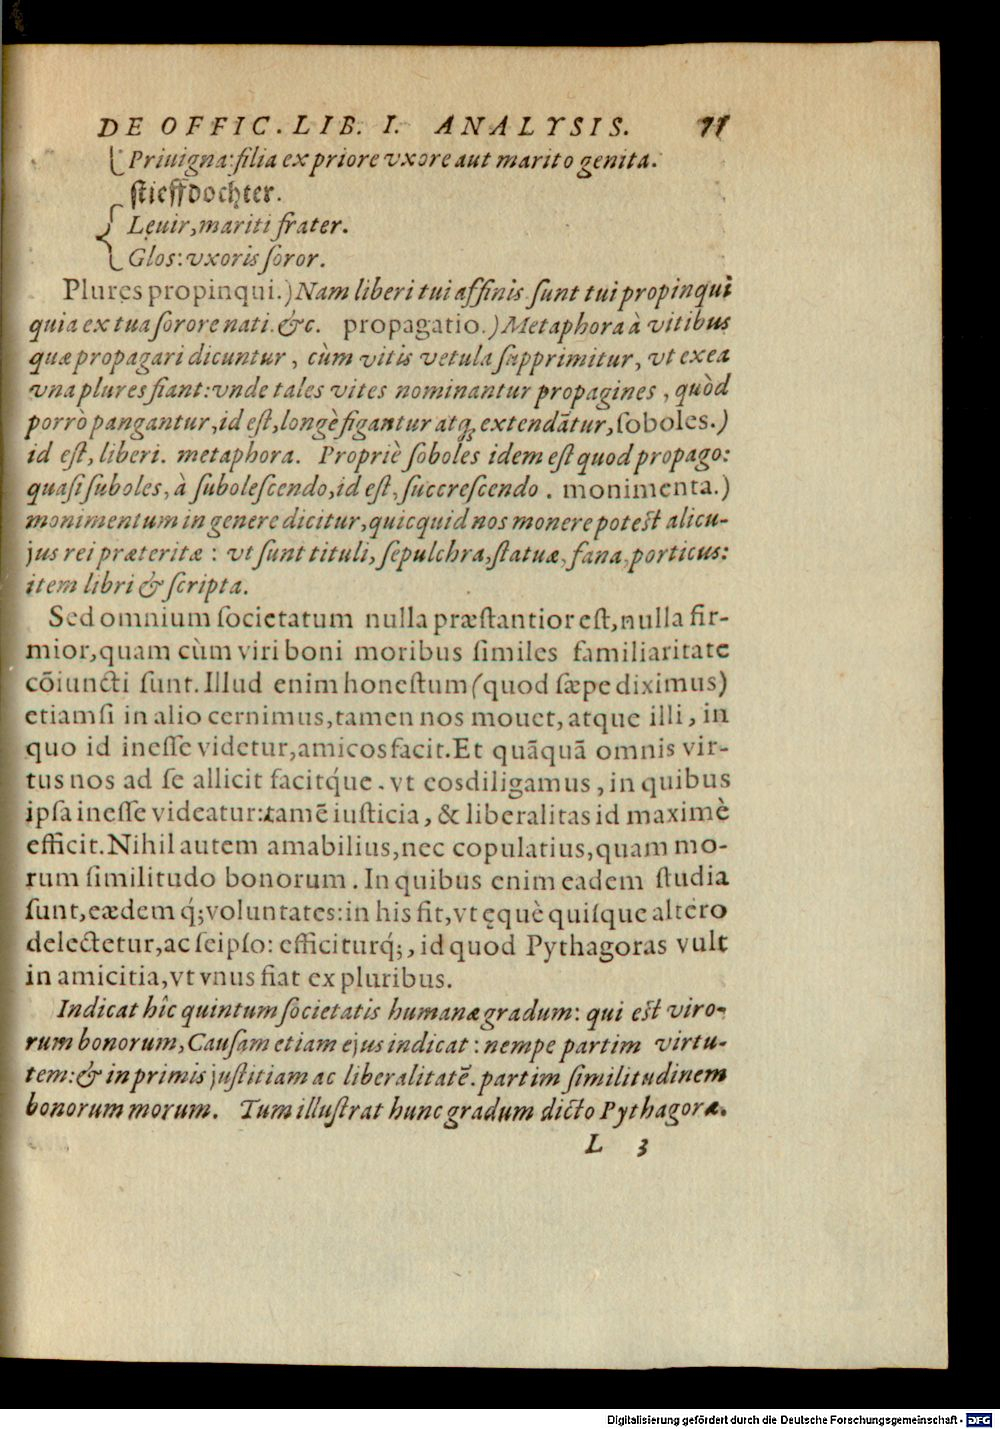 DE OFFIC. LIB. I. ANALYSIS. 71
Priuigna: filia ex priore vxore aut marito genita.
stieffdochter.
Leuir, mariti frater.
Glos: vxoris ſoror.
Plures propinqui.) Nam liberi tui affinis ſunt tui propinqui
quia ex tua ſorore nati. &c. propagatio.) Metaphora à vitibus
quæ propagari dicuntur, cùm vitis vetula ſupprimitur, vt ex ea
vna plures fiant: vnde tales vites nominantur propagines, quòd
porrò pangantur, id eſt, longè figantur atq; extendātur, ſoboles.)
id eſt, liberi. metaphora. Propriè ſoboles idem eſt quod propago:
quaſi ſuboles, à ſuboleſcendo, id eſt, ſuccreſcendo. monimenta.)
monimentum in genere dicitur, quicquid nos monere poteſt alicu-
jus rei præteritæ: vt ſunt tituli, ſepulchra, ſtatuæ, fana, porticus:
item libri & ſcripta.
Sed omnium ſocietatum nulla præſtantior eſt, nulla fir-
mior, quam cùm viri boni moribus ſimiles familiaritate
cōiuncti ſunt. Illud enim honeſtum (quod ſæpe diximus)
etiamſi in alio cernimus, tamen nos mouet, atque illi, in
quo id ineſſe videtur, amicos facit. Et quāquā omnis vir-
tus nos ad ſe allicit facitq́ue. vt eos diligamus, in quibus
ipſa ineſſe videatur: tamē iuſticia, & liberalitas id maximè
efficit. Nihil autem amabilius, nec copulatius, quam mo-
rum ſimilitudo bonorum. In quibus enim eadem ſtudia
ſunt, eædem q́; voluntates: in his fit, vt ęquè quiſque altero
delectetur, ac ſeipſo: efficiturq́;, id quod Pythagoras vult
in amicitia, vt vnus fiat ex pluribus.
Indicat hîc quintum ſocietatis humanæ gradum: qui eſt viro-
rum bonorum, Cauſam etiam ejus indicat: nempe partim virtu-
tem: & inprimis juſtitiam ac liberalitatē. partim ſimilitudinem
bonorum morum. Tum illuſtrat hunc gradum dicto Pythagoræ.
L 3
Digitalisierung gefördert durch die Deutsche Forschungsgemeinschaft - DFG